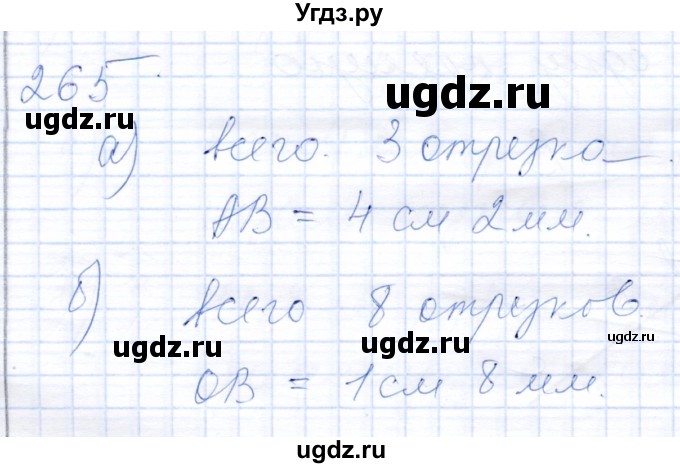 Угдз.ру
265.
ugdz.ru
ugdz.ru
а) всего. 3 отрезка.
АВ = 4 см 2 мм.
б) всего 8 отрезков.
ugdz.ru
ugdz.ru
ugdz.ru
ОВ = 1 см 8 мм.
ugdz.ru